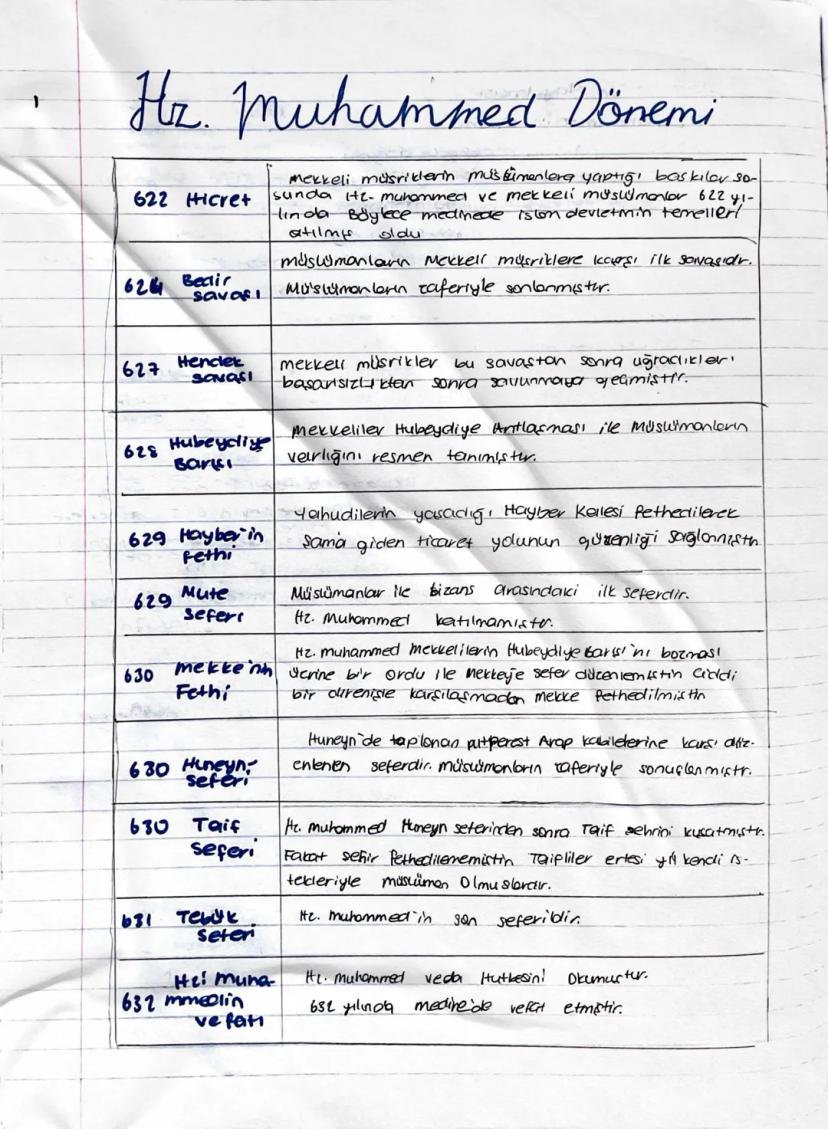 Hz. Muhammed Dönemi
622 Hicret
Mekkeli müşriklerin müslümanlara yaptığı baskılar so-
sunda Hz. muhammed ve mekkeli müslümanlar 622 yı-
lında Böylece medinede islam devletinin temelleri
atılmış oldu
624 Bedir
savaşı
müslümanların Mekkeli müşriklere karşı ilk savaşıdır.
Müslümanların zaferiyle sonlanmıştır.
627 Hendek
savaşı
mekkeli müşrikler bu savaştan sonra uğradıkları
başarısızlıktan sonra savunmaya geçmiştir.
628 Hubeydiye
Barışı
Mekkeliler Hubeydiye Antlaşması ile Müslümanların
varlığını resmen tanımıştır.
629 Hayber'in
fethi
Yahudilerin yaşadığı Hayber Kalesi fethedilerek
Şama giden ticaret yolunun güvenliği sağlanmıştır
629 Mute
seferi
Müslümanlar ile bizans arasındaki ilk seferdir.
Hz. Muhammed katılmamıştır.
630 Mekke'nin
Fethi
Hz. muhammed Mekkelilerin Hubeydiye barışı'nı bozması
üzerine bir ordu ile Mekkeye sefer düzenlemiştir. Ciddi
bir direnişle karşılaşmadan mekke fethedilmiştir
630 Huneyn
seferi
Huneyn'de toplanan putperest Arap kabilelerine karşı düz-
enlenen seferdir. müslümanların zaferiyle sonuçlanmıştır.
630 Taif
seferi
Hz. muhammed Huneyn seferinden sonra Taif şehrini kuşatmıştır.
Fakat şehir fethedilememiştir. Taifliler ertesi yıl kendi is-
tekleriyle müslüman olmuşlardır.
631 Tebük
seferi
Hz. Muhammed'in son seferidir.
Hz. muha-
632 mmedin
vefatı
Hz. muhammed veda Hutbesini Okumuştur.
632 yılında medine'de vefat etmiştir.